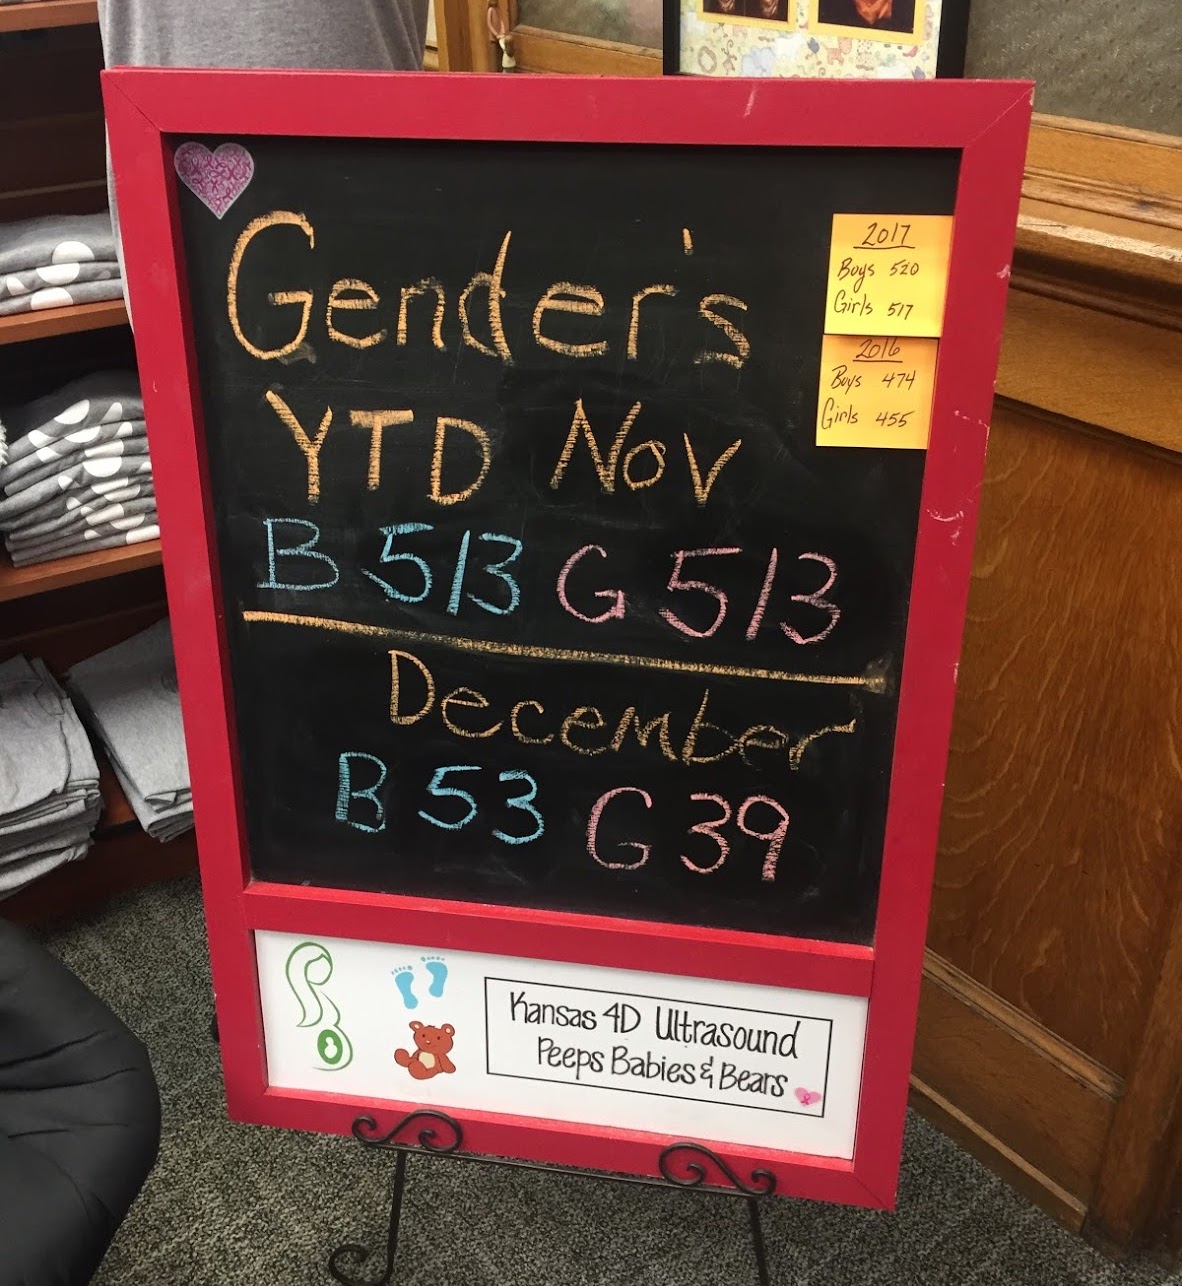 Gender's
YTD Nov
B 513 G 513
December
B 53 G 39
2017
Boys 520
Girls 517
2016
Boys 474
Girls 455
Kansas 4D Ultrasound
Peeps Babies & Bears